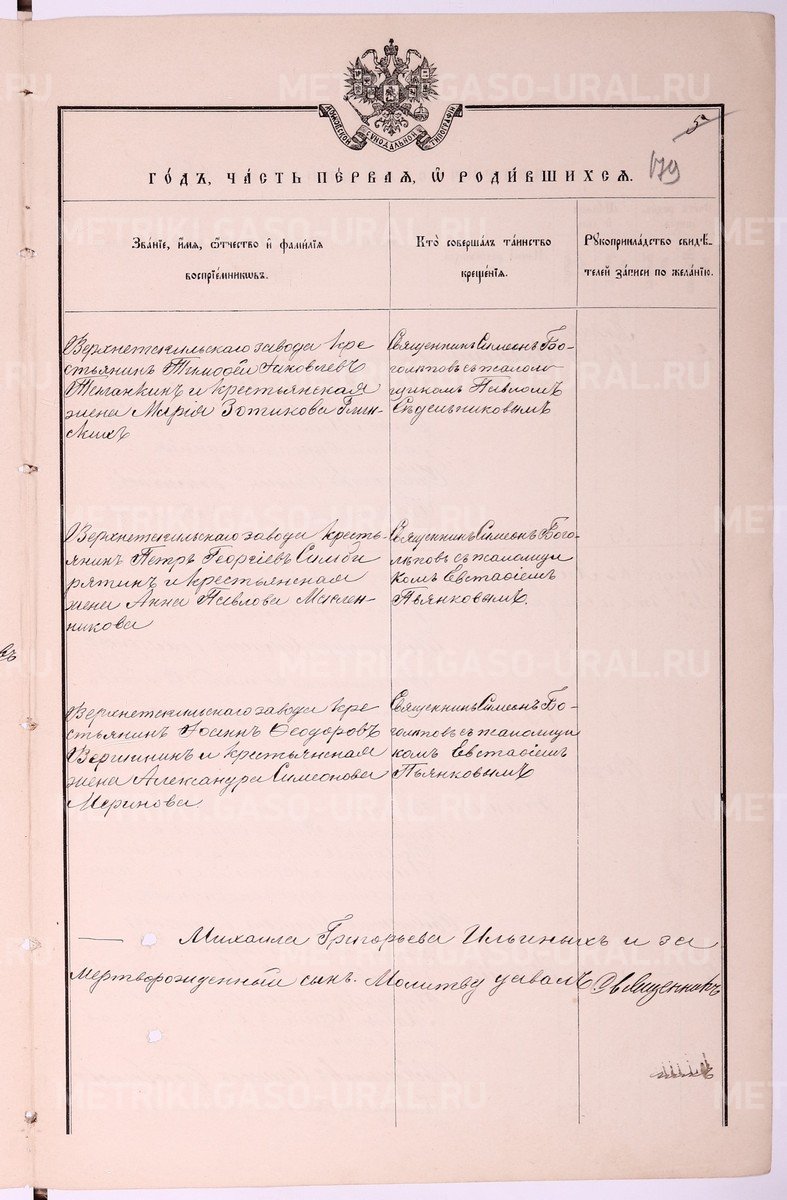 METRIKI.GASO-URAL.RU
МОСКОВСКОЙ СѴНОДАЛЬНОЙ ТИПОГРАФІИ
5
179
ГО́ДЪ, ЧА́СТЬ ПЕ́РВАѦ, Ѡ҆ РОДИ́ВШИХСѦ.
Зва́нїе, и҆́мѧ, ѻ҆́тчество и҆ фами́лїѧ
воспрїе́мникѡвъ.
Кто̀ соверша́лъ та́инство
креще́нїѧ.
Рꙋкоприкла́дство свидѣ́-
телей за́писи по жела́нїю.
Верхнетагильскаго завода кре-
стьянинъ Тимофей Іаковлевъ
и крестьянская
жена Марія Зотикова Глин-
скихъ
Священникъ Симеонъ Бо-
голѣповъ съ псалом-
щикомъ Павломъ
Сѣдельниковымъ
Верхнетагильскаго завода кресть-
янинъ Петръ Георгіевъ Симби-
рятинъ и крестьянская
жена Анна Павлова Маслен-
никова
Священникъ Симеонъ Бого-
лѣповъ съ псаломщи
комъ Евстаѳіемъ
Пьянковымъ.
Верхнетагильскаго завода кре-
стьянинъ Іоаннъ Ѳеодоровъ
и крестьянская
жена Александра Симеонова
Меринова.
Священникъ Симеонъ Бо-
голѣповъ съ псаломщи
комъ Евстаѳіемъ
Пьянковымъ
— Михаила Григорьева Ильиныхъ и за
Мертворожденный сынъ. Молитву давалъ Священникъ